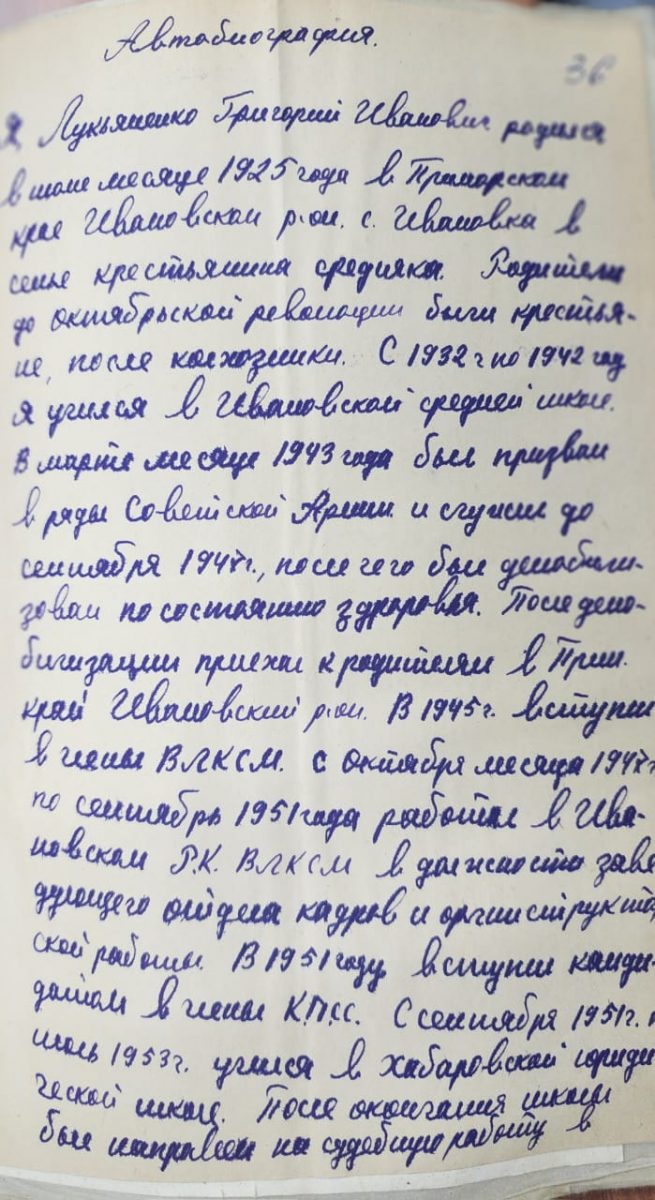 Автобиография.
36
Я Лукьяненко Григорий Иванович родился
в июне месяце 1925 года в Приморском
крае Ивановском р-он. с. Ивановка в
семье крестьянина средняка. Родители
до октябрьской революции были крестья-
не, после колхозники. С 1932 г по 1942 год
я учился в Ивановской средней школе.
В марте месяце 1943 года был призван
в ряды Советской Армии и служил до
сентября 1947 г., после чего был демобили-
зован по состоянию здоровья. После демо-
билизации приехал к родителям в Прим.
край Ивановский р-он. В 1945 г. вступил
в члены ВЛКСМ. с октября месяца 1947
по сентябрь 1951 года работал в Ива-
новском Р.К. ВЛКСМ в должности заве
дующего отдела кадров и оргинструкто
ской работы. В 1951 году вступил канди-
датом в члены К.П.СС. С сентября 1951 г. п
июль 1953 г. учился в Хабаровской юриди
ческой школе. После окончания школы
был направлен на судебную работу в